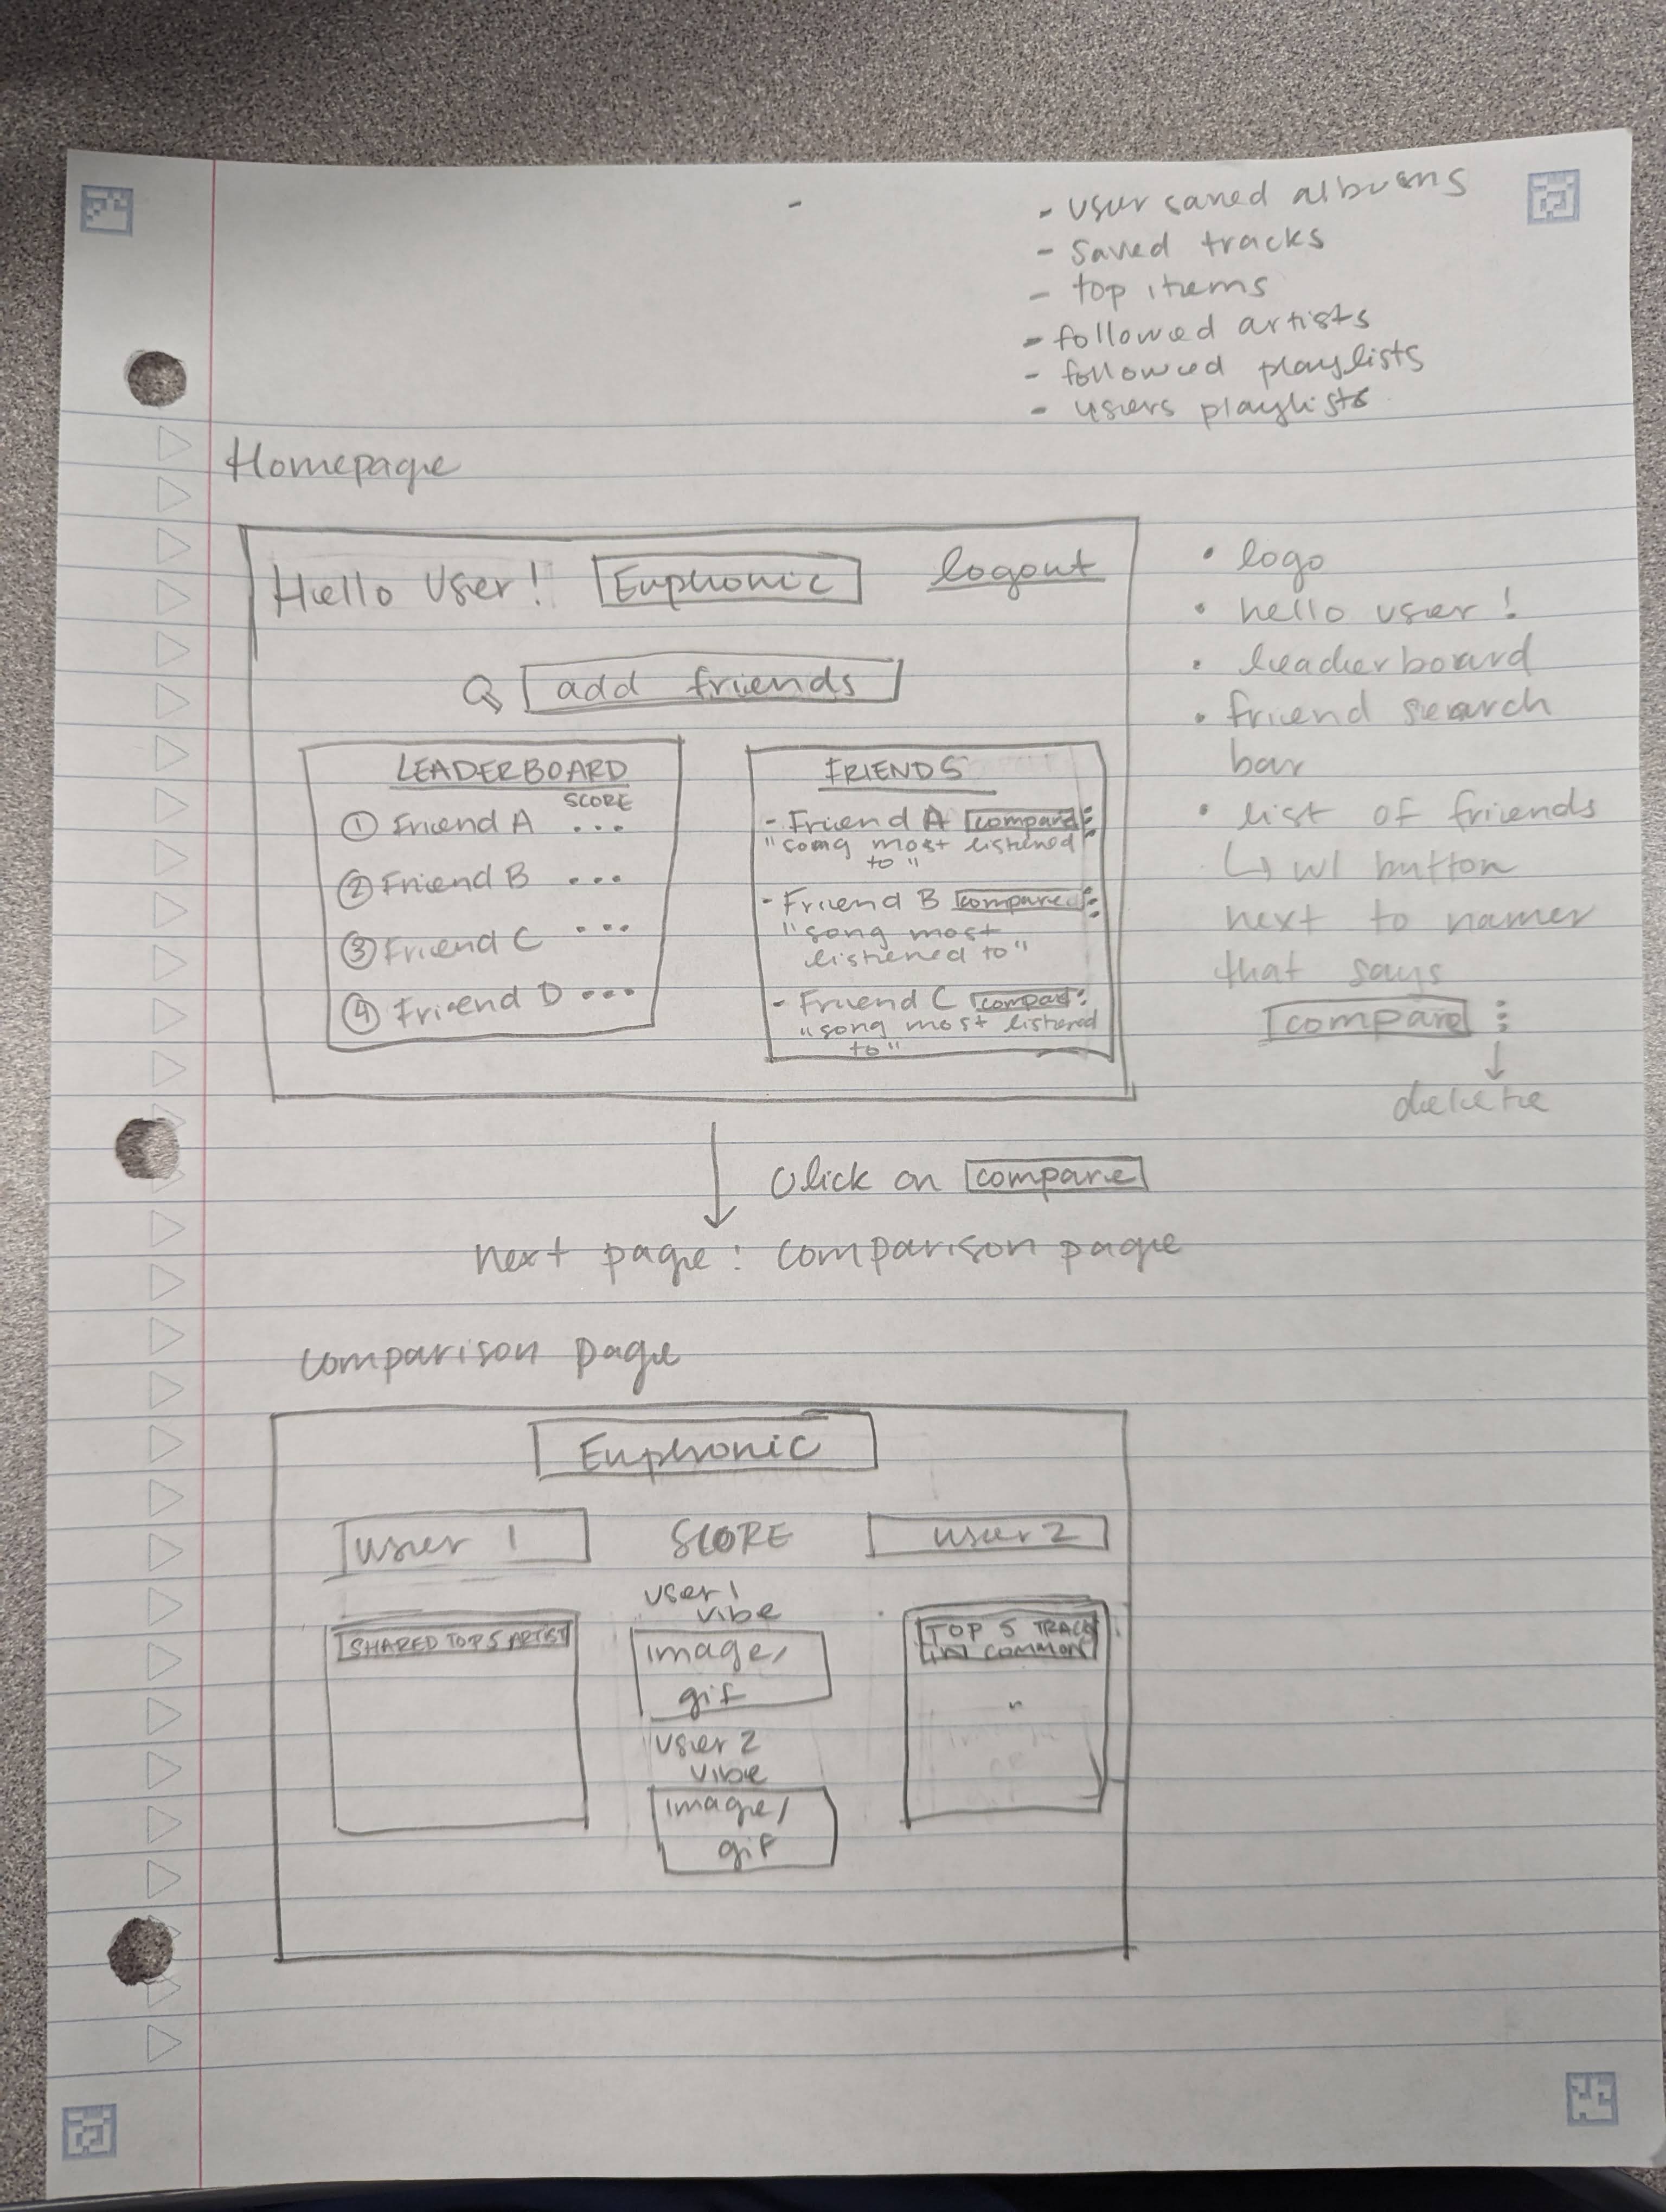 - user saved albums
- saved tracks
- top items
- followed artists
- followed playlists
- users playlists
Homepage
Hello User! Euphonic logout
add friends
LEADERBOARD
SCORE
① Friend A ...
② Friend B ...
③ Friend C ...
④ Friend D ...
FRIENDS
- Friend A compare :
"song most listened
to"
- Friend B compare :
"song most
listened to"
- Friend C compare :
"song most listened
to"
• logo
• hello user!
• leaderboard
• friend search
bar
• list of friends
↳ w/ button
next to namer
that says
compare :
↓
delete
↓ Click on compare
next page: comparison page
comparison page
Euphonic
user 1 SCORE user 2
SHARED TOP 5 ARTIST
user 1
vibe
image/
gif
user 2
vibe
image/
gif
TOP 5 TRACK
IN COMMON